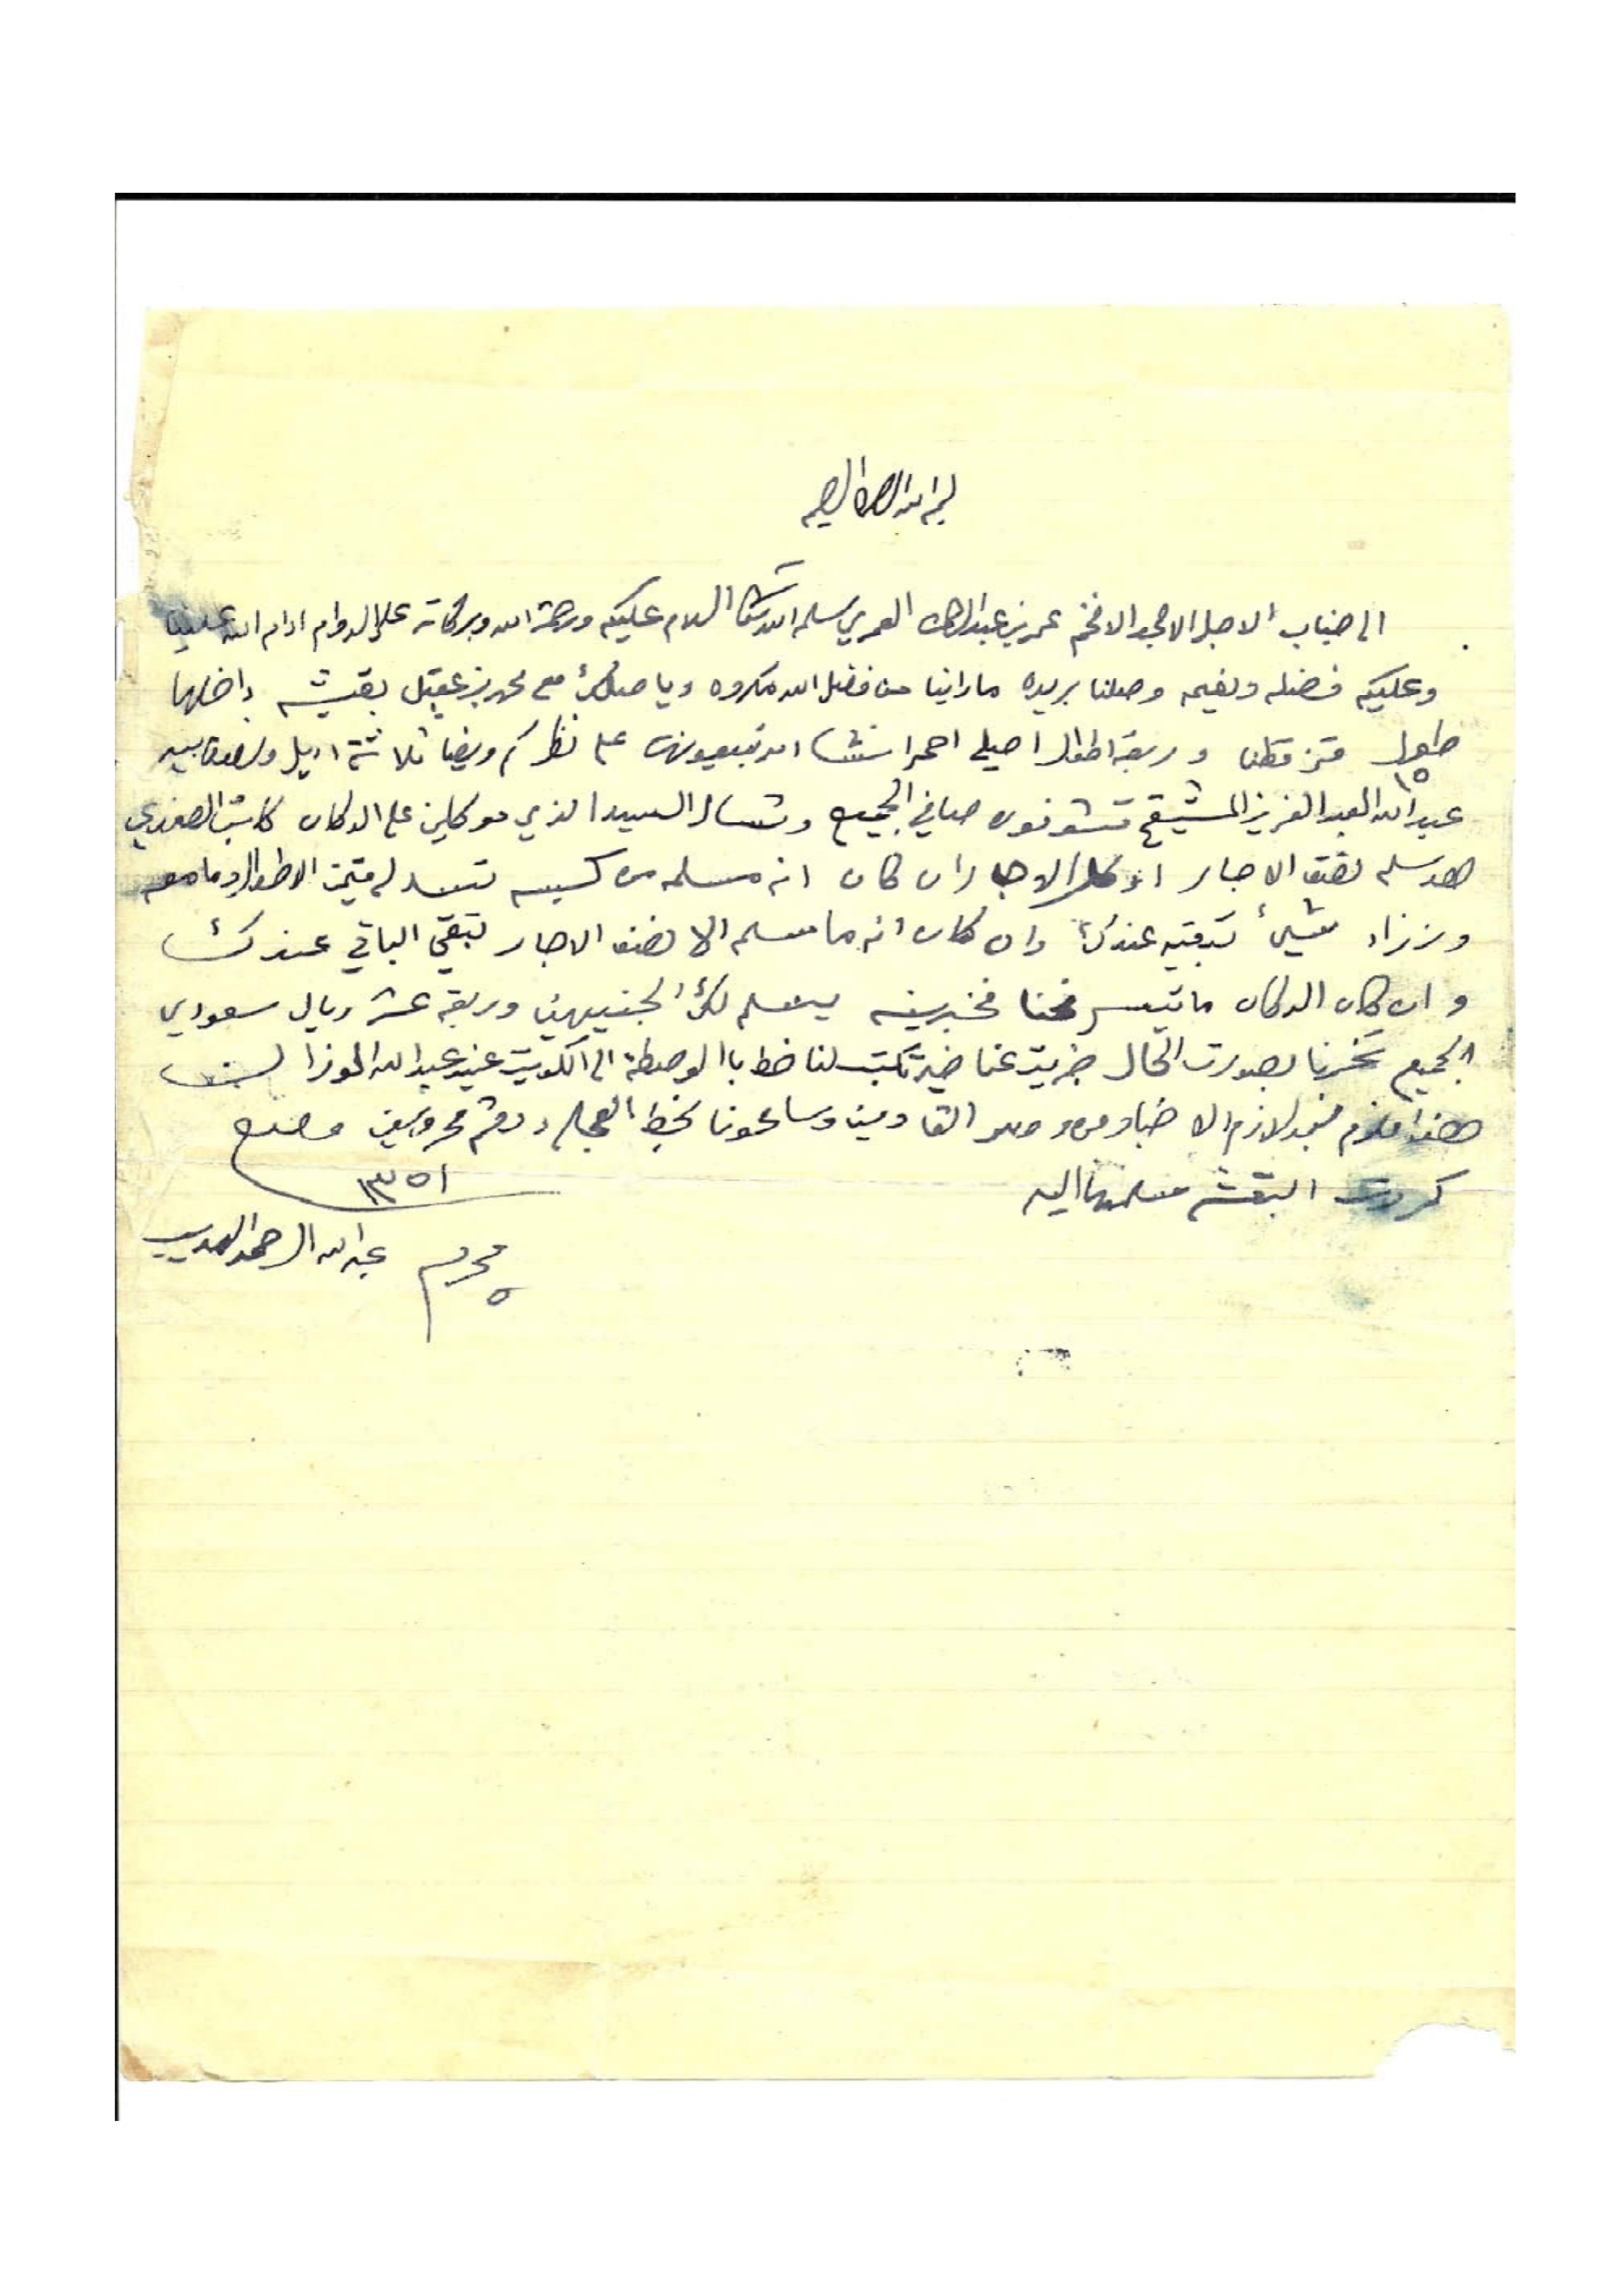 بسم الله الرحمن الرحيم
الى جناب الاجل الامجد الافخم عمر بن عبدالرحمن العمري سلمه الله تعالى السلام عليكم ورحمة الله وبركاته على الدوام ادام الله علينا
وعليكم فضله ونعيمه وصلنا بريده ما راينا من فضل الله مكروه وياصلك مع محمد بن عقيل بقشه داخلها
١٥ طول وربعة اطوال اصيلي احمر انشا الله تبيعونهن على نظركم وايضا ثلاثة اريل بيد
عبدالله العبدالعزيز المشيقح تشوفون صافي الجميع وتسال السيد الذي موكلين على الدكان كانب
هو سلم نصف الاجار او كل الاجار ان كان انه مسلمه من كسيبه تسدد له من الاطوال وما معه
ون زاد شيء تبقيه عندك وان كان انه ما مسلم الا نصف الاجار تبقي الباقي عندك
وان كان الدكان ما تيسر يسلم لك الجنيهين وربعة عشر ريال سعودي
الجميع تخبرنا بصورت الحال جزيت عنا خير تكتب لنا خط باالوصطة الى الكويت عند عبدالله الموزا
هذا ملزم لازم الاخبار القادمين وسامحونا بخط العجل ودمتم محروسين
١٣٥١
كررت البقشه مسلمها اليه
محرم عبدالله الرحمن
٥